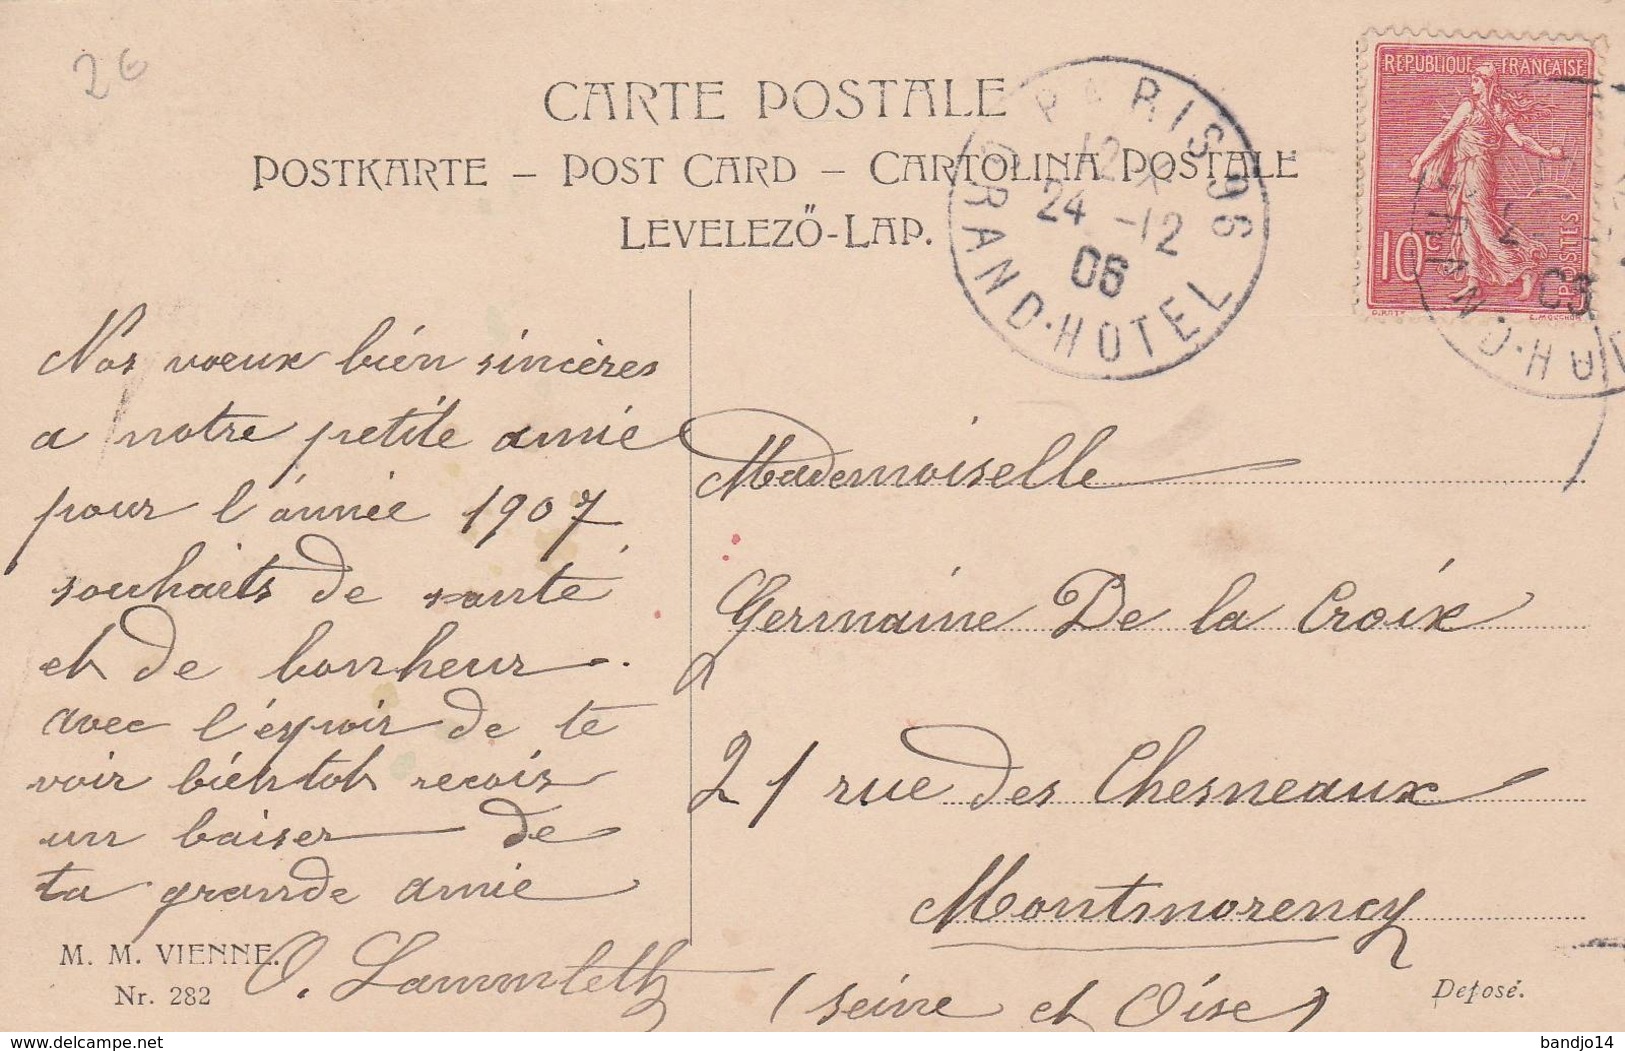 2€
CARTE POSTALE
POSTKARTE – POST CARD – CARTOLINA POSTALE
LEVELEZŐ-LAP.
PARIS 96
12
24 -12
06
GRAND-HOTEL
REPUBLIQUE FRANÇAISE
10c
POSTES
E. MOUCHON
Nos voeux bien sincères
a notre petite amie
pour l'année 1907
souhaits de santé
et de bonheur.
avec l'espoir de te
voir bientot recois
un baiser de
ta grande amie
Mademoiselle
Germaine De la Croix
21 rue des Chesneaux
Montmorency
(Seine et Oise)
M. M. VIENNE.
Nr. 282
Deposé.
delcampe.net
bandjo14